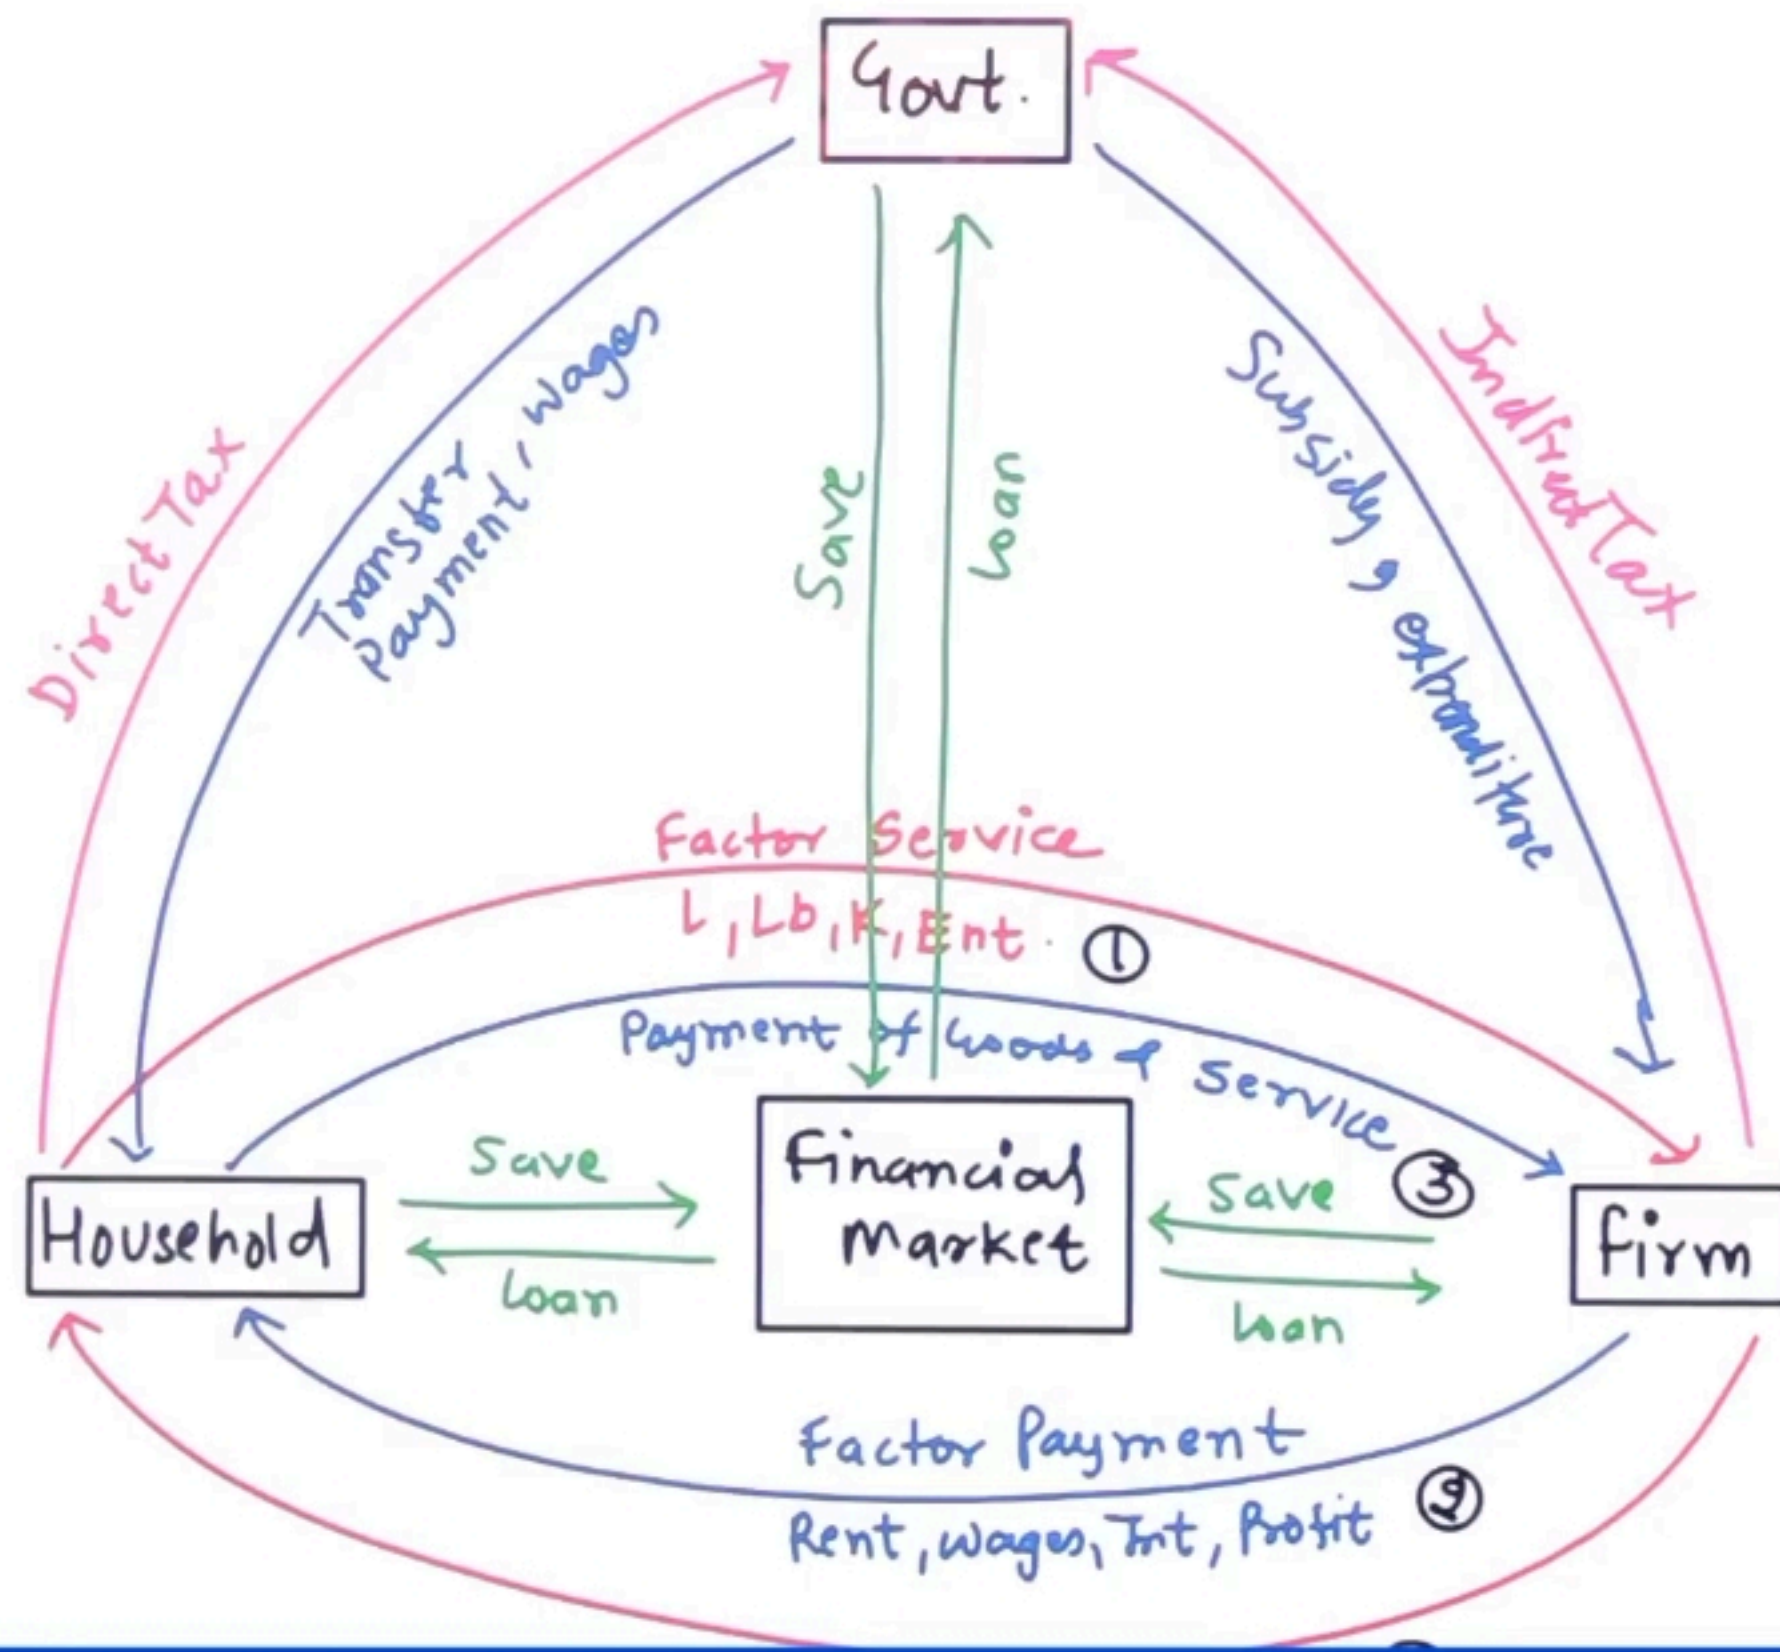 Govt.
Direct Tax
Transfer
Payment, wages
Save
Loan
Subsidy, expenditure
Indirect Tax
Factor Service
L, Lb, K, Ent.
①
Payment of Goods & Service
③
Household
Save
Loan
Financial
Market
Save
Loan
firm
Factor Payment
②
Rent, wages, Int, Profit